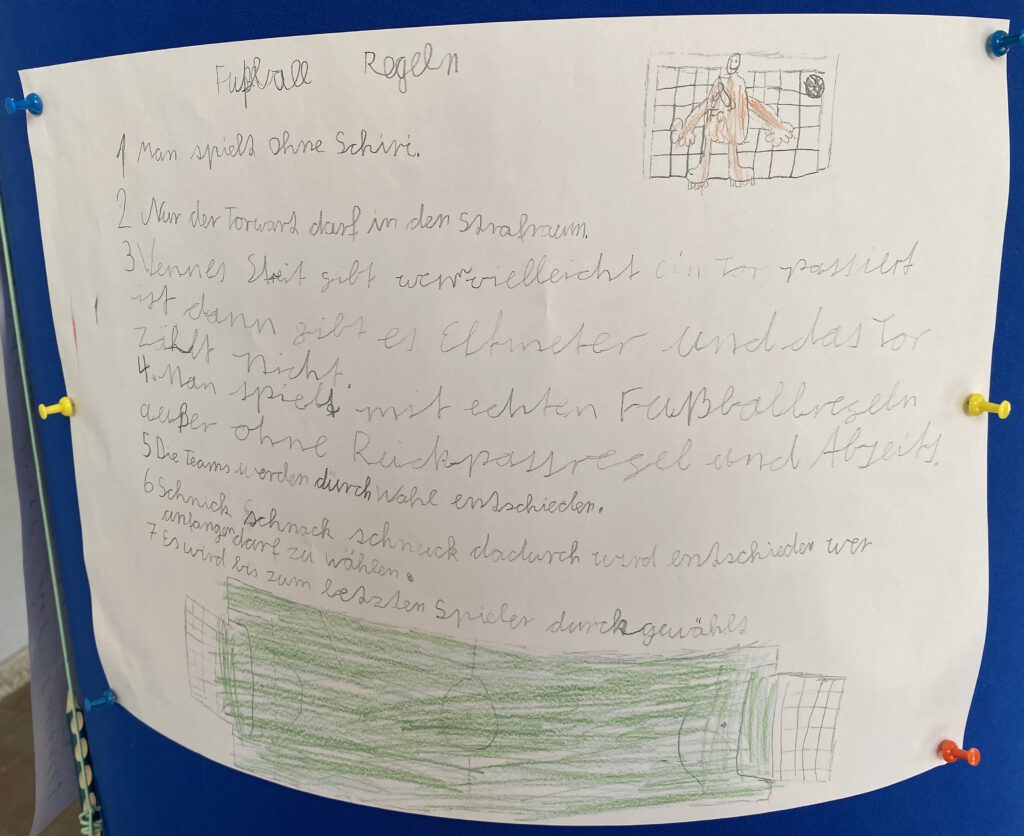 Fußball Regeln
1 Man spielt ohne Schiri.
2 Nur der Torwart darf in den Strafraum.
3 Wennes Streit gibt wenn vielleicht ein Tor passiert
ist dann gibt es Elfmeter und das Tor
zählt Nicht.
4. Man spielt mit echten Fußballregeln
außer ohne Rückpassregel und Abseits.
5 Die Teams werden durch Wahl entschieden.
6 Schnick Schnack schnuck dadurch wird entschieden wer
anfangen darf zu wählen.
7 Es wird bis zum letzten Spieler durchgewählt